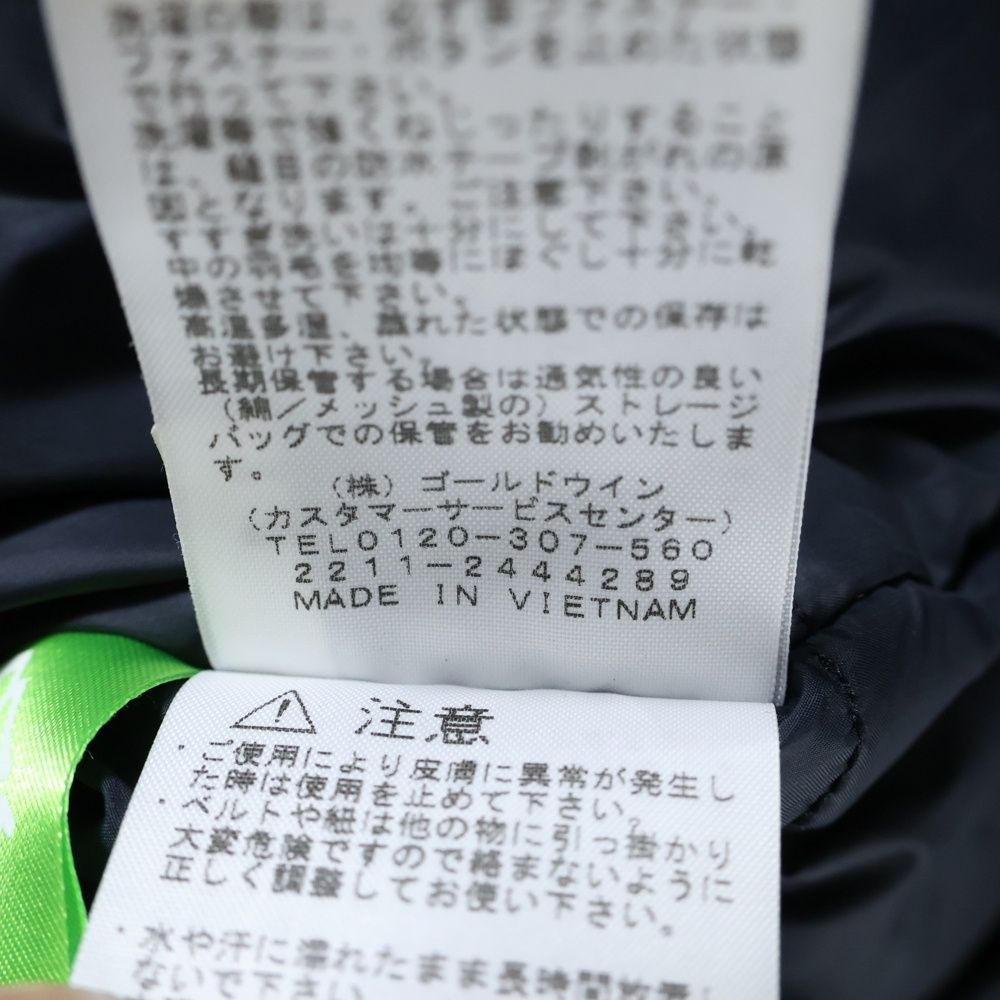 洗濯の際は、必ず全ファスナー・
ファスナー・ボタンを止めた状態
で行って下さい。
洗濯等で強くねじったりすること
は、縫目の防水テープ剥がれの原
因となります。ご注意下さい。
すすぎ洗いは十分にして下さい。
中の羽毛を均等にほぐし十分に乾
燥させて下さい。
高温多湿、濡れた状態での保存は
お避け下さい。
長期保管する場合は通気性の良い
(綿/メッシュ製の)ストレージ
バッグでの保管をお勧めいたしま
す。
(株)ゴールドウイン
(カスタマーサービスセンター)
TEL0120-307-560
2211-2444289
MADE IN VIETNAM
注意
・ご使用により皮膚に異常が発生し
た時は使用を止めて下さい。
・ベルトや紐は他の物に引っ掛かり
大変危険ですので絡まないように
正しく調整してお使い下さい。
・水や汗に濡れたまま長時間放置し
ないで下さい。